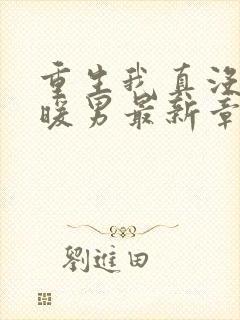 重生我真没
暖男最新章
劉進田